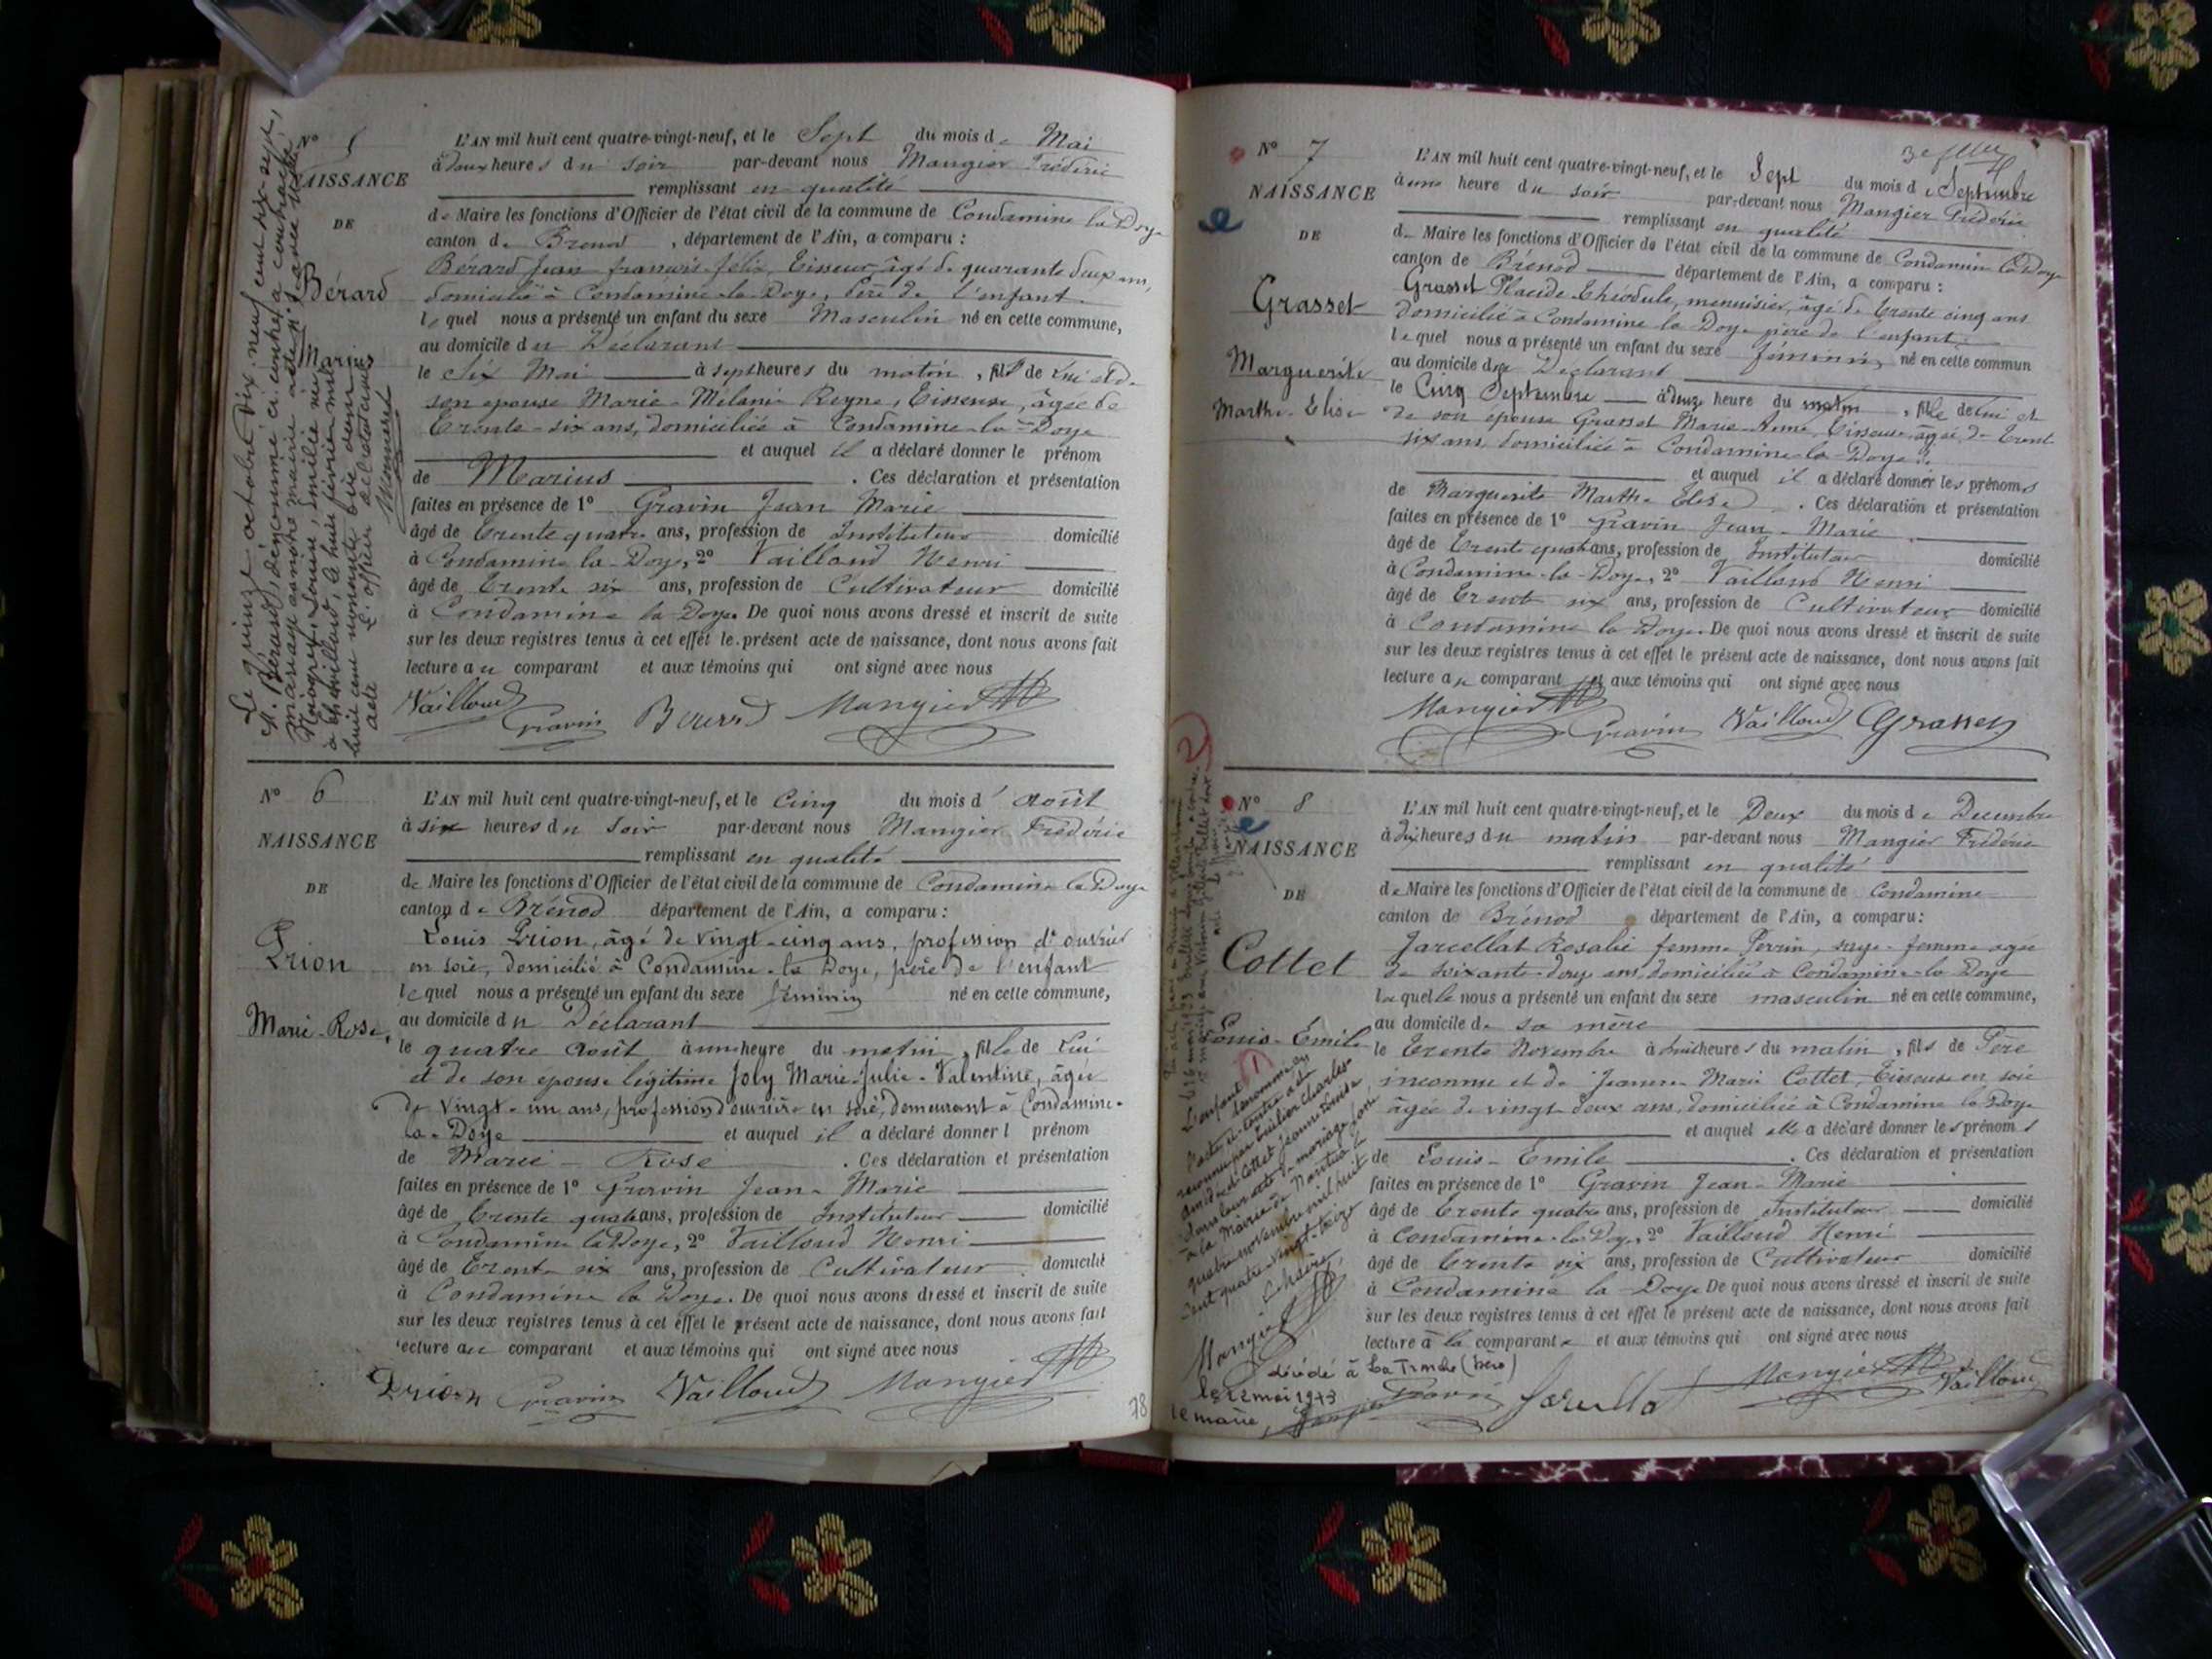 N° 5
NAISSANCE
DE
Bérard
Marius
L'AN mil huit cent quatre-vingt-neuf, et le Sept du mois de Mai
à deux heures du soir par-devant nous Mangier Frédéric
remplissant en qualité
de Maire les fonctions d'Officier de l'état civil de la commune de Condamine la Doye
canton de Brenod, département de l'Ain, a comparu :
Bérard Jean françois félix, Tisseur, âgé de quarante deux ans,
domicilié à Condamine-la-Doye, Père de l'enfant
lequel nous a présenté un enfant du sexe Masculin né en cette commune,
au domicile du Déclarant
le Six Mai à sept heures du matin, fils de Lui et de
son epouse Marie-Mélanie Reyne, Tisseuse, âgée de
Trente-six ans, domiciliée à Condamine-la-Doye
et auquel il a déclaré donner le prénom
de Marius. Ces déclaration et présentation
faites en présence de 1° Gravin Jean Marie
âgé de trente quatre ans, profession de Instituteur domicilié
à Condamine la-Doye, 2° Vailloud Henri
âgé de trente six ans, profession de Cultivateur domicilié
à Condamine la Doye. De quoi nous avons dressé et inscrit de suite
sur les deux registres tenus à cet effet le présent acte de naissance, dont nous avons fait
lecture au comparant et aux témoins qui ont signé avec nous
Vailloud Gravin Berard Mangier
Le quinze octobre dix-neuf cent dix-sept,
M. Bérard, dénommé ci-contre a contracté
mariage à notre mairie acte n° avec
Louise, Emilie née
à le huit février mil
huit cent nonante
acte L'officier
N° 6
NAISSANCE
DE
Drion
Marie-Rose,
L'AN mil huit cent quatre-vingt-neuf, et le Cinq du mois d'août
à six heures du Soir par-devant nous Mangier Frédéric
remplissant en qualité
de Maire les fonctions d'Officier de l'état civil de la commune de Condamine la Doye
canton de Brénod département de l'Ain, a comparu :
Louis Drion, âgé de vingt-cinq ans, profession d'ouvrier
en soie, domicilié à Condamine-la Doye, père de l'enfant
lequel nous a présenté un enfant du sexe féminin né en cette commune,
au domicile du Déclarant
le quatre août à une heure du matin, fille de Lui
et de son epouse légitime Joly Marie-Julie-Valentine, âgée
de vingt-un ans, profession d'ouvrière en soie, demeurant à Condamine-
la-Doye et auquel il a déclaré donner l prénom
de Marie-Rose. Ces déclaration et présentation
faites en présence de 1° Gravin Jean-Marie
âgé de trente quatre ans, profession de Instituteur domicilié
à Condamine la Doye, 2° Vailloud Henri
âgé de trente six ans, profession de Cultivateur domicilié
à Condamine la Doye. De quoi nous avons dressé et inscrit de suite
sur les deux registres tenus à cet effet le présent acte de naissance, dont nous avons fait
lecture au comparant et aux témoins qui ont signé avec nous
Drion Gravin Vailloud Mangier
78
N° 7
NAISSANCE
DE
Grasset
Marguerite
Marthe-Elise
L'AN mil huit cent quatre-vingt-neuf, et le Sept du mois de Septembre
à une heure du soir par-devant nous Mangier Frédéric
remplissant en qualité
de Maire les fonctions d'Officier de l'état civil de la commune de Condamine la Doye
canton de Brénod département de l'Ain, a comparu :
Grasset Placide Théodule, menuisier, âgé de trente cinq ans
domicilié à Condamine la-Doye père de l'enfant
lequel nous a présenté un enfant du sexe féminin né en cette commun
au domicile du Déclarant
le Cinq Septembre à heure du matin, fille de Lui et
de son epouse Grasset Marie-Anne, Tisseuse âgée de Trente-
six ans, domiciliée à Condamine-la-Doye
et auquel il a déclaré donner les prénoms
de Marguerite Marthe Elise. Ces déclaration et présentation
faites en présence de 1° Gravin Jean-Marie
âgé de trente quatre ans, profession de Instituteur domicilié
à Condamine-la-Doye, 2° Vailloud Henri
âgé de trente six ans, profession de Cultivateur domicilié
à Condamine la Doye. De quoi nous avons dressé et inscrit de suite
sur les deux registres tenus à cet effet le présent acte de naissance, dont nous avons fait
lecture au comparant et aux témoins qui ont signé avec nous
Mangier Gravin Vailloud Grasset
N° 8
NAISSANCE
DE
Cottet
Louis-Emile
L'AN mil huit cent quatre-vingt-neuf, et le Deux du mois de Decembre
à dix heures du matin par-devant nous Mangier Frédéric
remplissant en qualité
de Maire les fonctions d'Officier de l'état civil de la commune de Condamine
canton de Brénod département de l'Ain, a comparu :
Jarcellat Rosalie femme Perrin, sage-femme agée
de soixante-douze ans, domiciliée à Condamine-la Doye
laquelle nous a présenté un enfant du sexe masculin né en cette commune,
au domicile de sa mère
le Trente Novembre à huit heures du matin, fils de Père
inconnu et de Jeanne-Marie Cottet, Tisseuse en soie
âgée de vingt deux ans, domiciliée à Condamine la Doye
et auquel elle a déclaré donner les prénoms
de Louis-Emile. Ces déclaration et présentation
faites en présence de 1° Gravin Jean-Marie
âgé de trente quatre ans, profession de Instituteur domicilié
à Condamine-la-Doye, 2° Vailloud Henri
âgé de trente six ans, profession de Cultivateur domicilié
à Condamine la Doye De quoi nous avons dressé et inscrit de suite
sur les deux registres tenus à cet effet le présent acte de naissance, dont nous avons fait
lecture à la comparante et aux témoins qui ont signé avec nous
Gravin Mangier Vailloud
L'enfant dénommé en
l'acte ci-contre a été
reconnu par Charles
et Cottet Jeanne Louise
dans leur acte de mariage
à la Mairie de Nantua le
quatre novembre mil huit
cent quatre-vingt-treize
Mangier
décédé à La Tronche (Isère)
le 12 mai 1973
le maire,